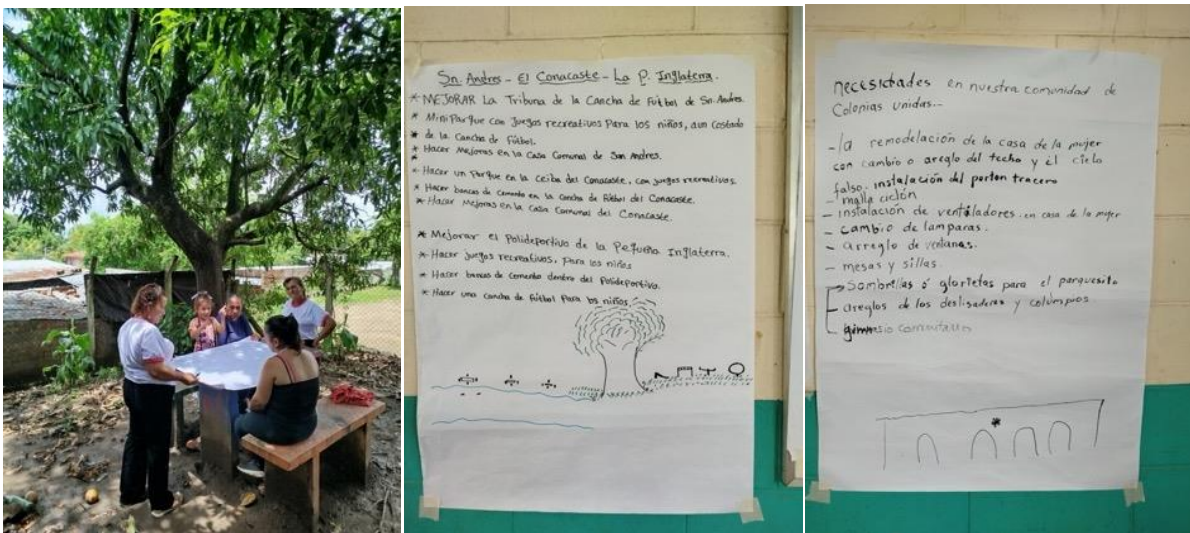 Sn. Andres - El Conacaste - La P. Inglaterra.
* MEJORAR La Tribuna de la Cancha de Fútbol de Sn. Andres.
* Mini Parque con Juegos recreativos Para los niños, aun costado
* de la Cancha de Fútbol.
* Hacer Mejoras en la Casa Comunal de San Andres.
*
* Hacer un Parque en la Ceiba del Conacaste, con juegos recreativos.
* Hacer bancas de cemento en la Cancha de Fútbol del Conacaste.
* Hacer Mejoras en la Casa Comunal del Conacaste.
* Mejorar el Polideportivo de la Pequeña Inglaterra.
* Hacer juegos recreativos, para los niños
* Hacer bancas de cemento dentro del Polideportivo.
* Hacer una cancha de fútbol Para los niños.
necesidades en nuestra comunidad de
Colonias unidas...
- la remodelación de la casa de la mujer
con cambio o areglo del techo y el cielo
falso. instalación del porton tracero
- malla ciclón
- instalación de ventiladores. en casa de la mujer
- cambio de lamparas.
- arreglo de ventanas.
- mesas y sillas.
Sombrillas ó glorietas para el parquesito
areglos de los deslisaderos y columpios
gimnasio comunitario